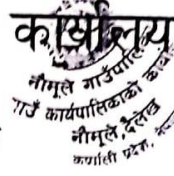 कार्यालय
नौमूले गाउँपालि
गाउँ कार्यपालिकाको कार्या
नौमूले, दैलेख
कर्णाली प्रदेश, नेपा